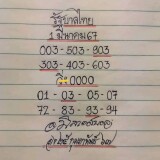 รัฐบาลไทย
1 มีนาคม 67
003-503-903
303-403-603
0000
01-03-05-07
72-83-93-94